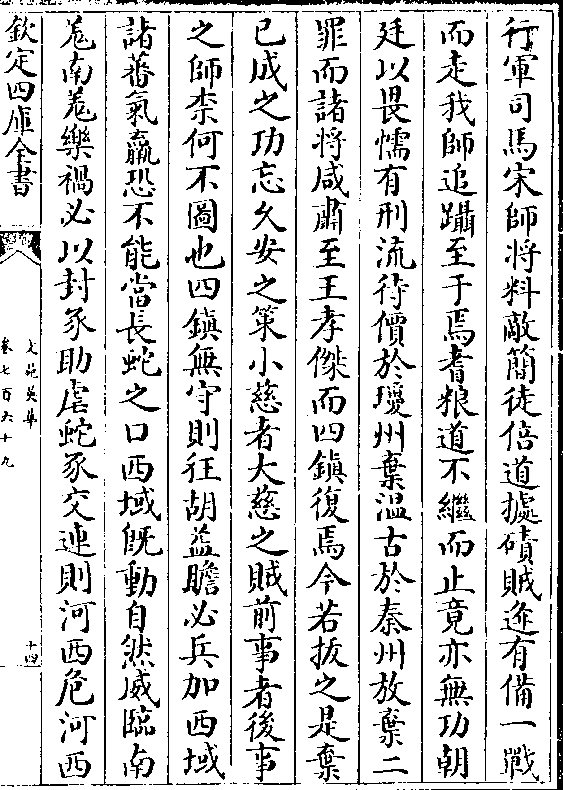 行軍司馬宋師將料敵簡徒倍道據磧賊逆有備一戰
而走我師追躡至于焉耆粮道不繼而止竟亦無功朝
廷以畏懦有刑流待價於瓊州棄温古於秦州放棄二
罪而諸将咸肅至王孝傑而四鎮復焉今若拔之是棄
已成之功忘久安之策小慈者大慈之賊前事者後事
之師柰何不圖也四鎮無守則狂胡益贍必兵加西域
諸蕃氣羸恐不能當長蛇之口西域既動自然威臨南
羗南羗樂禍必以封豕助虐蛇豕交連則河西危河西
欽定四庫全書
文苑英華
卷七百六十九
十四